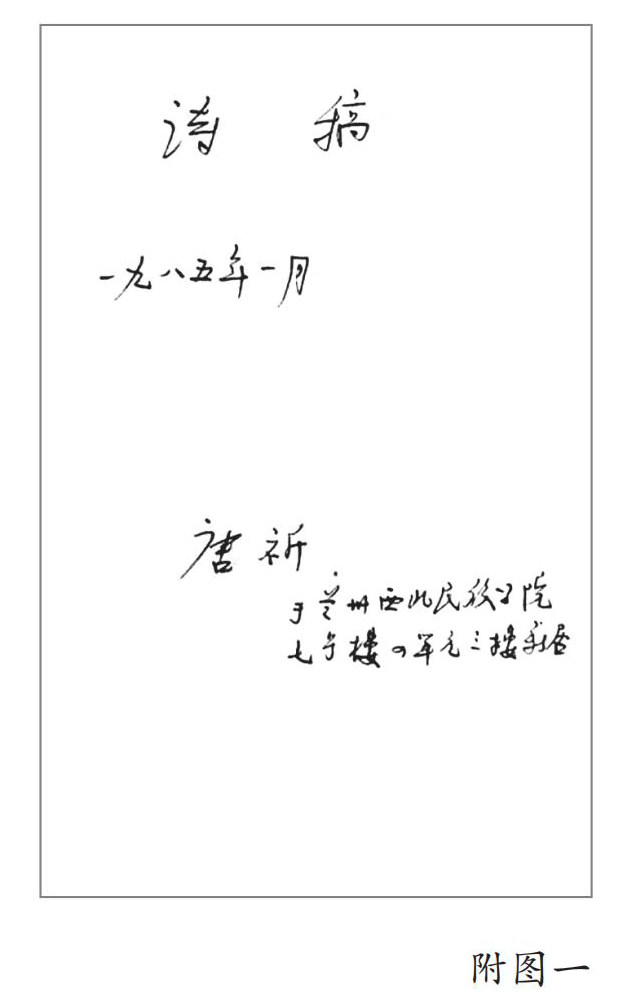 诗 稿
一九八五年一月
唐祈
于兰州西北民族学院
七号楼四单元三楼新居
附图一